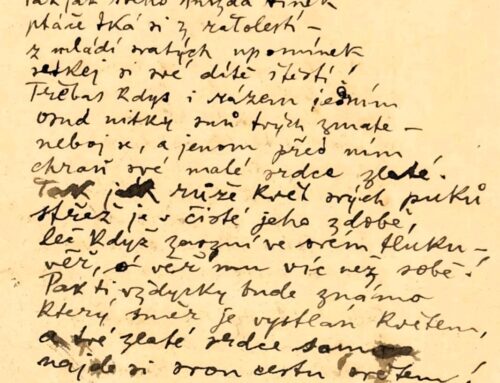 své hnízdo
ptáče tká si z ratolestí –
z mládí svatých upomínek
setkej si své dítě štěstí!
Třebas kdys i rázem jedním
osud nitky snů tvých zmate –
neboj se, a jenom před ním
chraň své malé srdce zlaté!
Tak jak růže květ svých puků
střež je v čisté jeho zdobě,
leč když zazní ve svém tluku –
věř, ó věř mu víc než sobě!
Pak ti vždycky bude známo
který směr je vystlán květem,
a tvé zlaté srdce samo
najde si svou cestu světem!